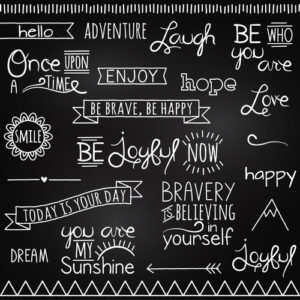 hello
ADVENTURE
Laugh
BE WHO
you are
Once UPON
A TIME
ENJOY
hope
BE BRAVE, BE HAPPY
Love
SMILE
BE Joyful NOW
happy
TODAY IS YOUR DAY
BRAVERY
IS BELIEVING
in
yourself
you are
MY
Sunshine
DREAM
joyful